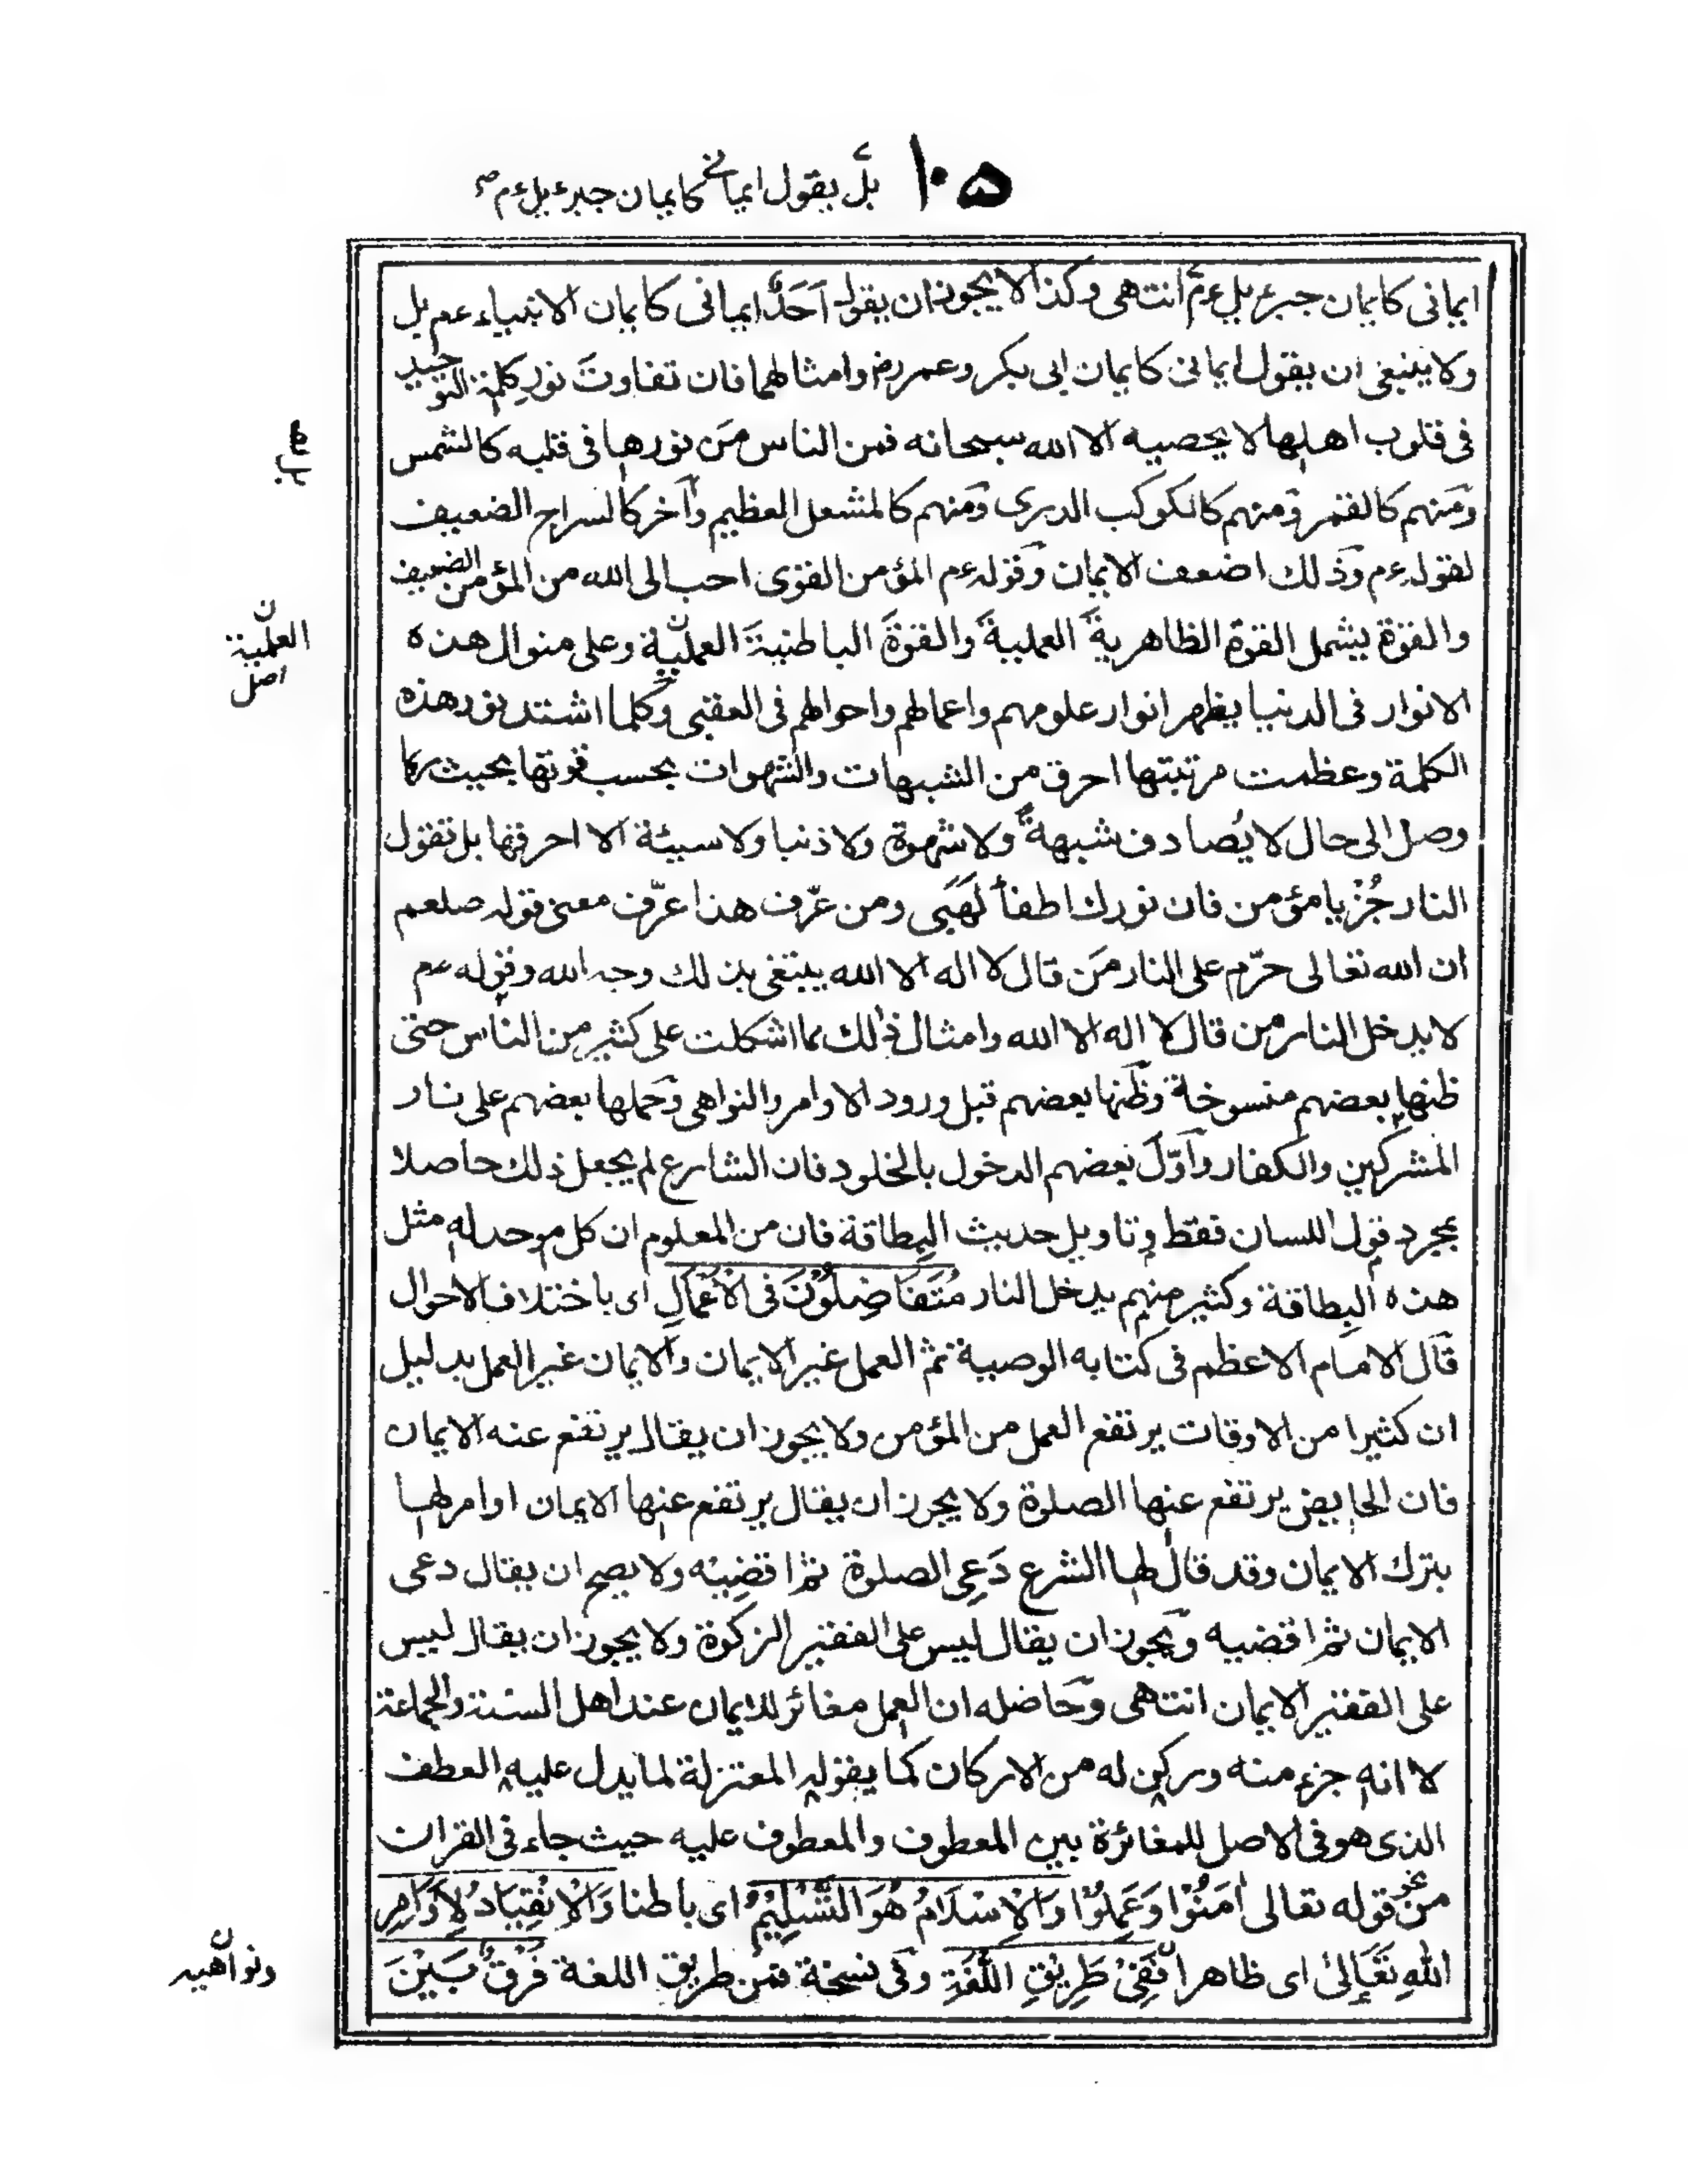 ١٠٥ بل يقول ايمانى كايمان جبرءيل ءم صح
ايمانى كايمان جبرءيل ءم انتهى وكذا لا يجوز ان يقول اَحَدٌ ايمانى كايمان الانبياء عم بل
ولا ينبغى ان يقول ايمانى كايمان ابى بكر وعمر رض وامثالهما فان تفاوتَ نورِ كلمة التوحيد
فى قلوب اهلها لا يحصيه الا الله سبحانه فمن الناس مَن نورها فى قلبه كالشمس
ومنهم كالقمر ومنهم كالكوكب الدرى ومنهم كالمشعل العظيم وآخر كالسراج الضعيف
لقوله ءم وذلك اضعف الايمان وقوله ءم المؤمن القوى احب الى الله من المؤمن الضعيف
والقوة يشمل القوة الظاهرية العملية والقوةَ الباطنيةَ العلمية وعلى منوال هذه
العلمية
اصل
الانوار فى الدنيا يظهر انوار علومهم واعمالهم واحوالهم فى العقبى وكلما اشتد نور هذه
الكلمة وعظمت مرتبتها احرق من الشبهات والشهوات بحسب قوتها بحيث ربما
وصل الى حال لا يُصادف شبهةً ولا شهوة ولا ذنبا ولا سيئة الا احرقها بل تقول
النار جُزْ يا مؤمن فان نورك اطفأ لَهَبى ومن عرف هذا عرف معنى قوله صلعم
ان الله تعالى حرّم على النار مَن قال لا اله الا الله يبتغى بذلك وجه الله وقوله عم
لا يدخل النار من قال لا اله الا الله وامثال ذلك مما اشكلت على كثير من الناس حتى
ظنها بعضهم منسوخة وظنها بعضهم قبل ورود الاوامر والنواهى وحملها بعضهم على نار
المشركين والكفار واَوّلَ بعضهم الدخول بالخلود فان الشارع لم يجعل ذلك حاصلا
بمجرد قول اللسان فقط وتاويل حديث البِطاقة فان من المعلوم ان كل موحد له مثل
هذه البِطاقة وكثير منهم يدخل النار مُتَفَاضِلُوْنَ فى الْاَعْمَالِ اى باختلاف الاحوال
قال الامام الاعظم فى كتابه الوصية ثم العمل غير الايمان والايمان غير العمل بدليل
ان كثيرا من الاوقات يرتفع العمل من المؤمن ولا يجوز ان يقال يرتفع عنه الايمان
فان الحايض يرتفع عنها الصلوة ولا يجوز ان يقال يرتفع عنها الايمان او امر لها
بترك الايمان وقد قال لها الشرع دَعِى الصلوة ثم اقضِيْه ولا يصح ان يقال دعى
الايمان ثم اقضيه ويجوز ان يقال ليس على الفقير الزكوة ولا يجوز ان يقال ليس
على الفقير الايمان انتهى وحاصله ان العمل مغائر للايمان عند اهل السنة والجماعة
لا انه جزء منه وركن له من الاركان كما يقوله المعتزلة لما يدل عليه العطف
الذى هو فى الاصل للمغائرة بين المعطوف والمعطوف عليه حيث جاء فى القران
من نحو قوله تعالى اٰمَنُوْا وَعَمِلُوْا وَالْاِسْلَامُ هُوَ التَّسْلِيْمُ اى باطنا وَالْاِنْقِيَادُ لِاَوَامِرِ
اللهِ تَعَالىٰ اى ظاهرا فَفِىْ طَرِيْقِ اللُّغَةِ وفى نسخة فمن طريق اللغة فَرْقٌ بَيْنَ
ونواهيه